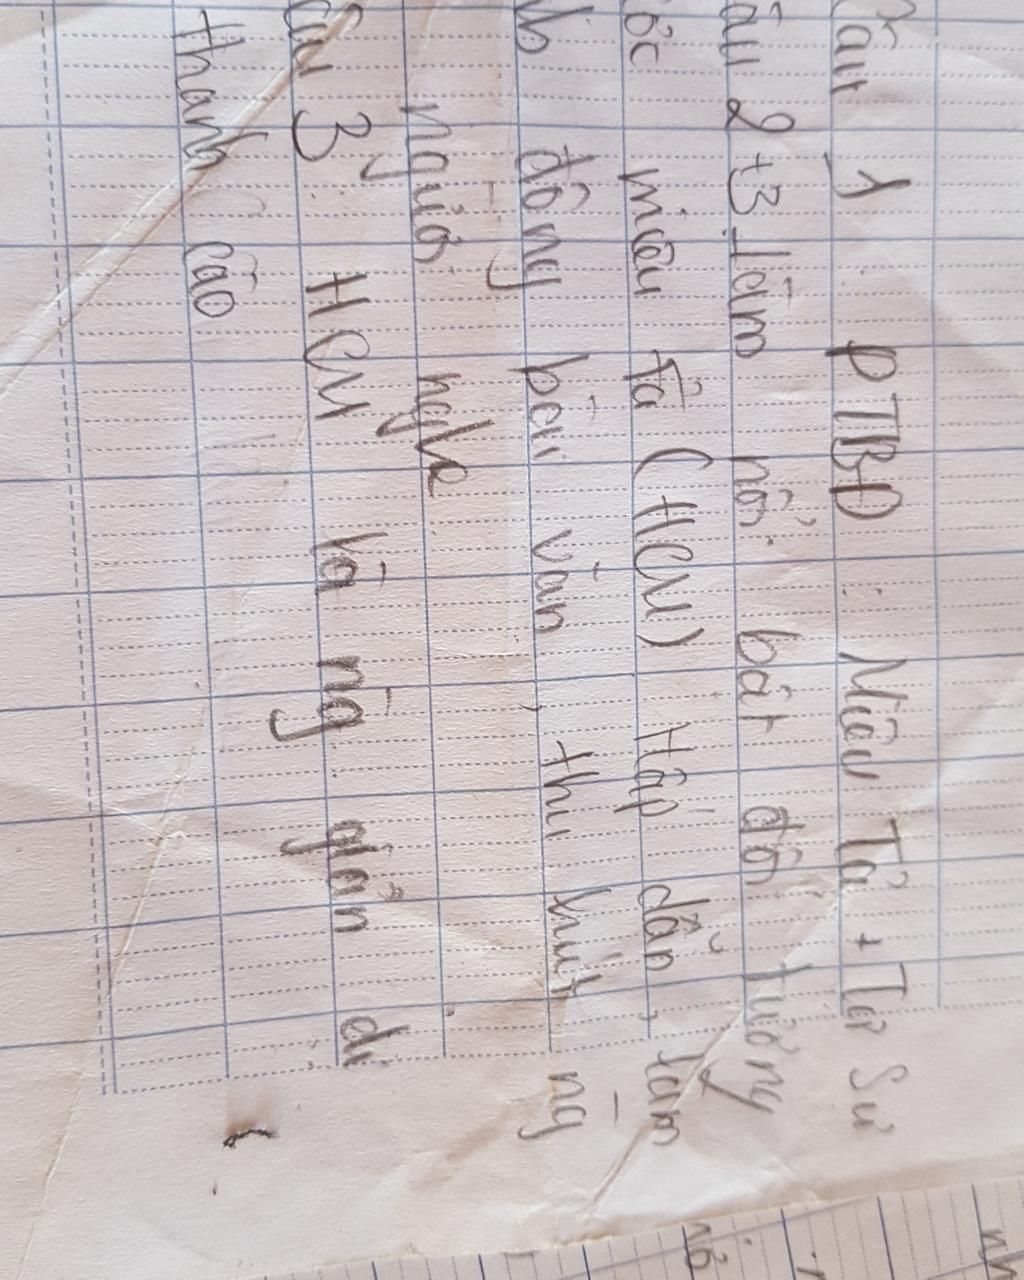 Câu 1. PTBD: Miêu Tả + Tự Sự
Câu 2+3 làm nổi bật đối tượng
được miêu tả (HCM) Hấp dẫn, làm
động bài văn, thu hút ng
người nghe
Câu 3: HCM là ng giản dị
thanh cao